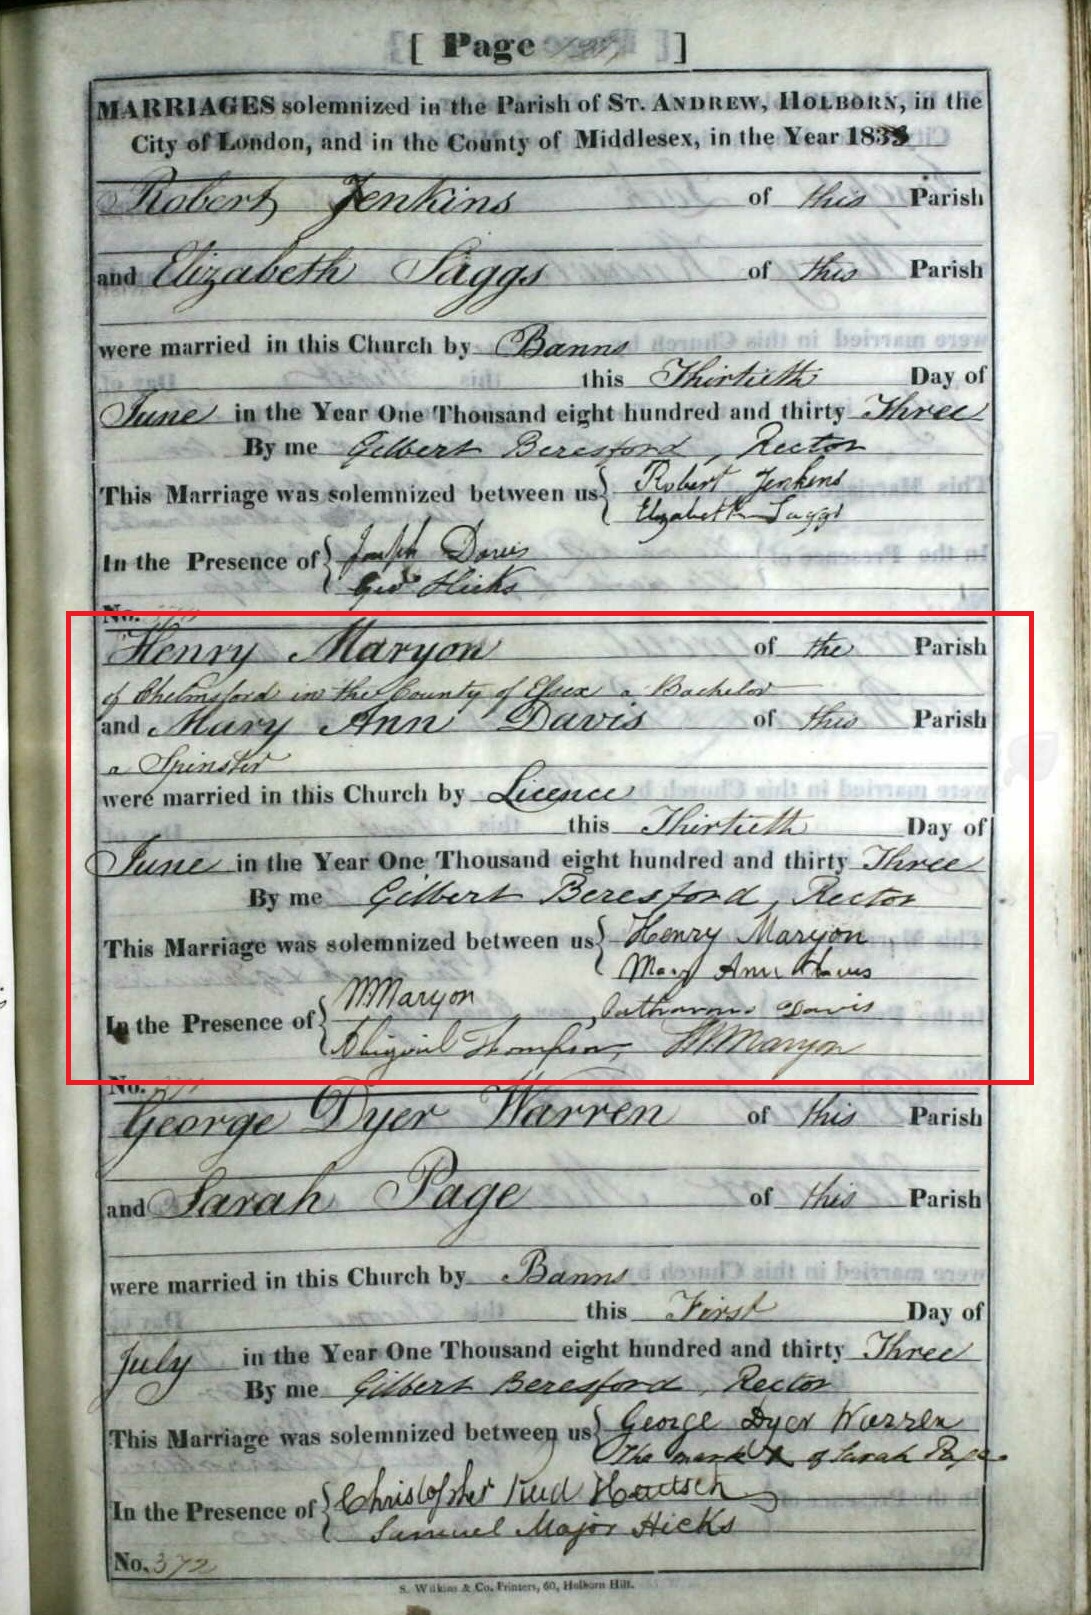 [ Page ]
MARRIAGES solemnized in the Parish of ST. ANDREW, HOLBORN, in the
City of London, and in the County of Middlesex, in the Year 1833
Robert Jenkins of this Parish
and Elizabeth Saggs of this Parish
were married in this Church by Banns
this Thirtieth Day of
June in the Year One Thousand eight hundred and thirty Three
By me Gilbert Beresford, Rector
This Marriage was solemnized between us { Robert Jenkins
Elizabeth Saggs
In the Presence of { Joseph Davis
Geo Hicks
No.
Henry Maryon of the Parish
of Chelmsford in the County of Essex a Bachelor
and Mary Ann Davis of this Parish
a Spinster
were married in this Church by Licence
this Thirtieth Day of
June in the Year One Thousand eight hundred and thirty Three
By me Gilbert Beresford, Rector
This Marriage was solemnized between us { Henry Maryon
Mary Ann Davis
In the Presence of { M Maryon, Davis
Abigail Thompson, Maryon
No.
George Dyer Warren of this Parish
and Sarah Page of this Parish
were married in this Church by Banns
this First Day of
July in the Year One Thousand eight hundred and thirty Three
By me Gilbert Beresford, Rector
This Marriage was solemnized between us { George Dyer Warren
The mark X of Sarah Page.
In the Presence of { Christopher
Samuel Major Hicks
No. 372
S. Wilkins & Co. Printers, 60, Holborn Hill.